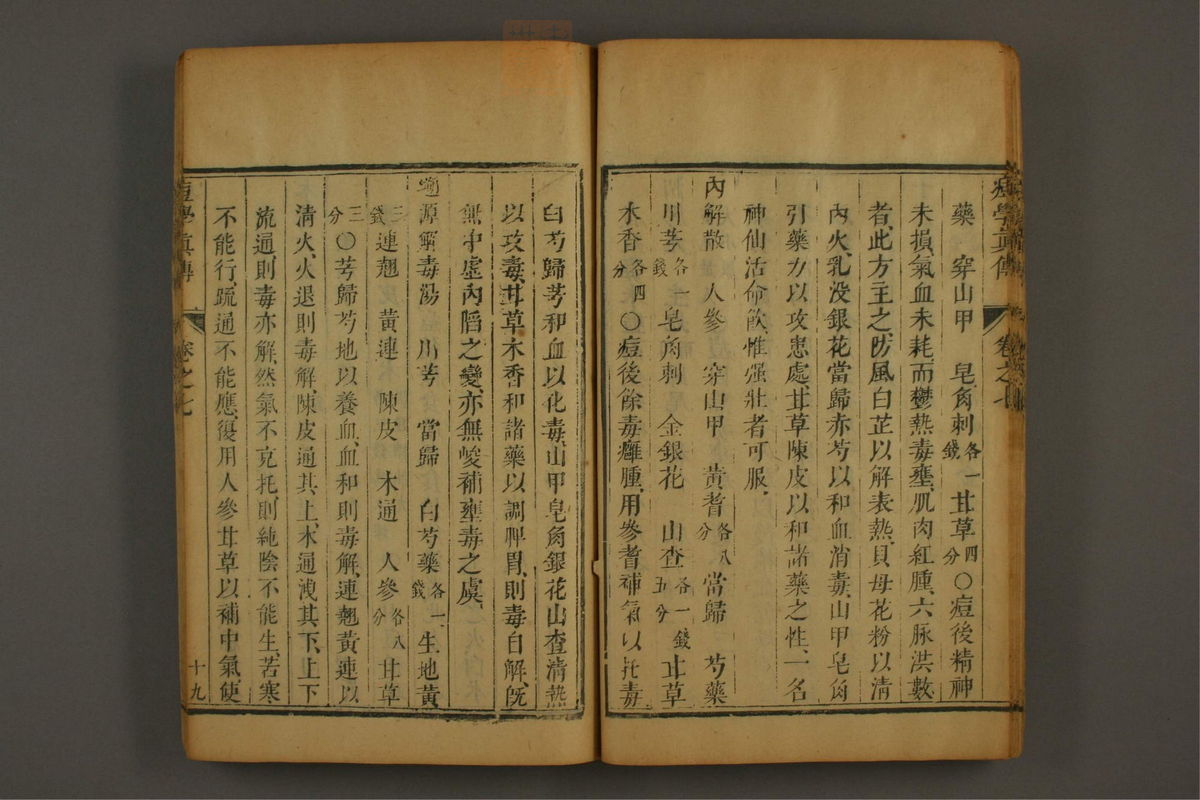 痘學眞傳 卷之七
藥 穿山甲 皂角刺各一錢 甘草四分 ○痘後精神
未損氣血未耗而鬱熱毒壅肌肉紅腫六脉洪數
者此方主之防風白芷以解表熱貝母花粉以清
內火乳没銀花當歸亦芍以和血消毒山甲皂角
引藥力以攻患處甘草陳皮以和諸藥之性一名
神仙活命飲惟强壯者可服
內解散 人參 穿山甲 黃耆各八分 當歸 芍藥
川芎各一錢 皂角刺 金銀花 山查各一錢五分 甘草
木香各四分 ○痘後餘毒癰腫用參耆補氣以托毒
白芍歸芎和血以化毒山甲皂角銀花山查清熱
以攻毒甘草木香和諸藥以調脾胃則毒自解旣
無中虛內陷之變亦無峻補壅毒之虞
遡源解毒湯 川芎 當歸 白芍藥各一錢 生地黃
三錢 連翹 黃連 陳皮 木通 人參各八分 甘草
三分 ○芎歸芍地以養血血和則毒解連翹黃連以
清火火退則毒解陳皮通其上木通洩其下上下
流通則毒亦解然氣不克托則純陰不能生苦寒
不能行疏通不能應復用人參甘草以補中氣使
痘學眞傳 卷之七 十九